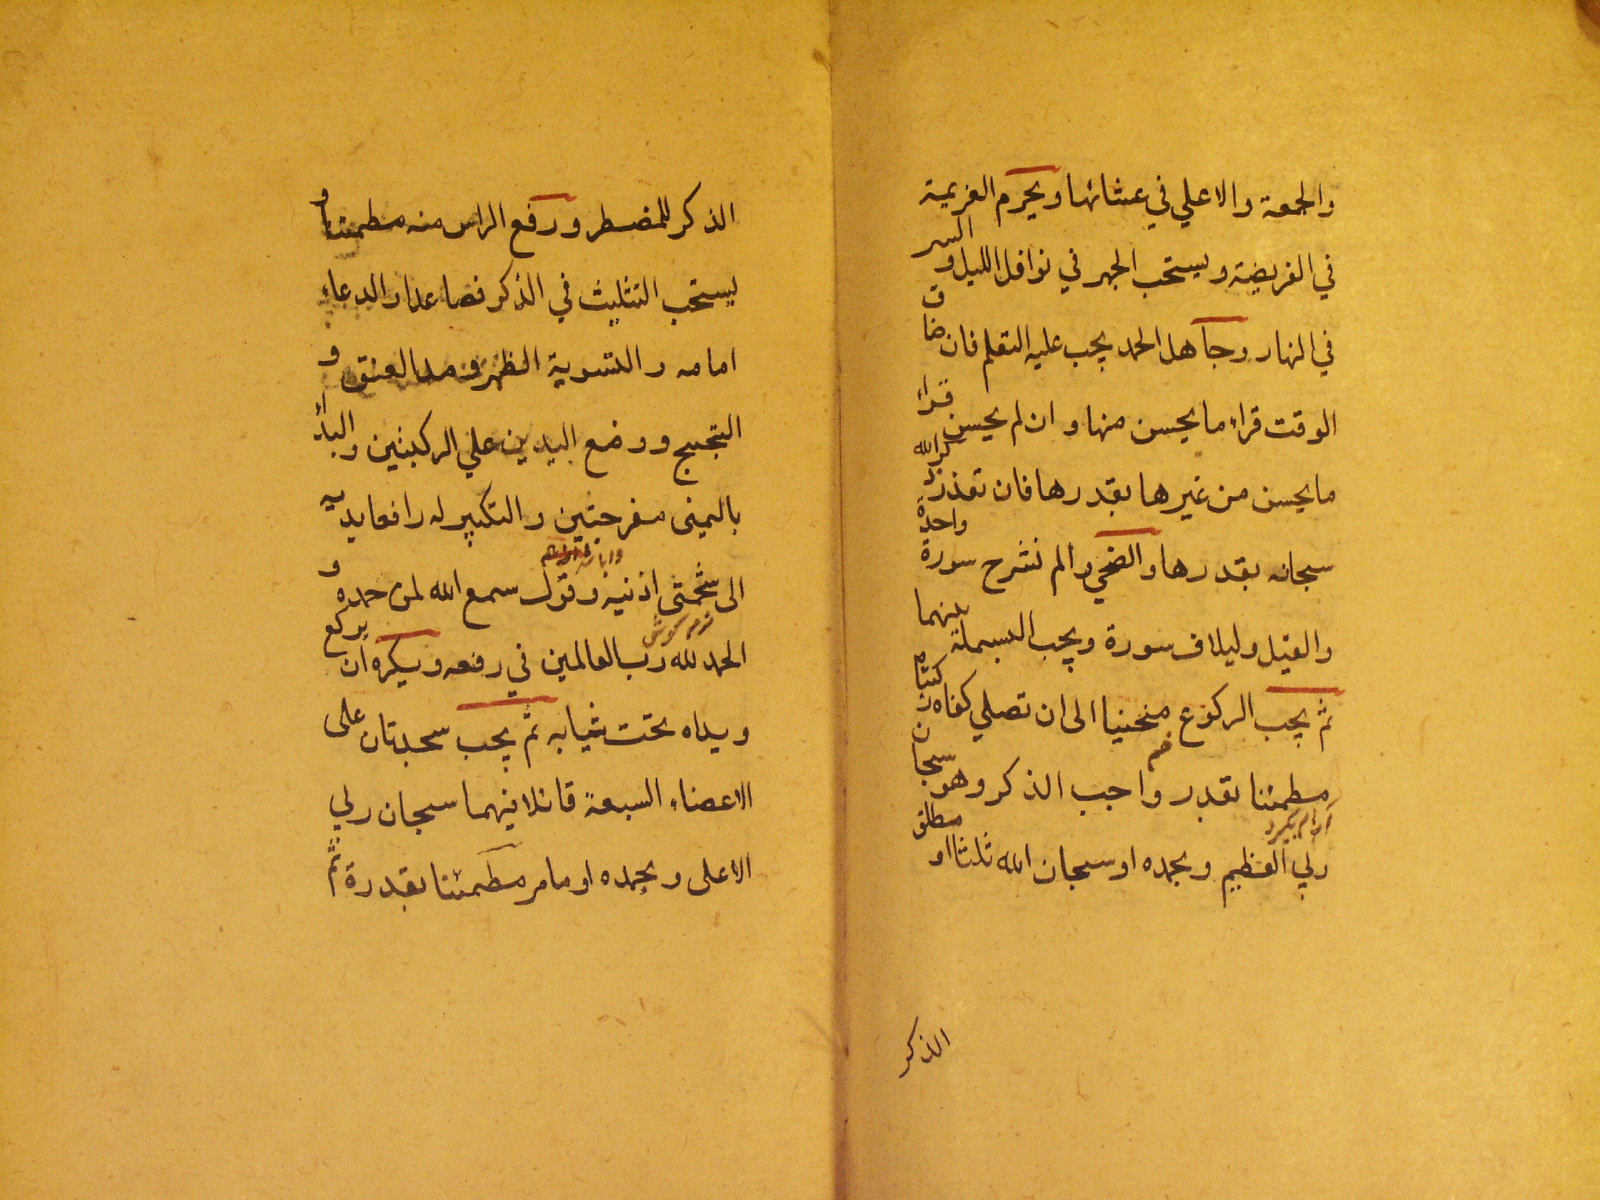 والجمعة والاعلي في عشائها ويحرم العزيمة
في الفريضة ويستحب الجهر في نوافل الليل والسر
في النهار وجاهل الحمد يجب عليه التعلم فان ضاق
الوقت قراء ما يحسن منها وان لم يحسن قراء
ما يحسن من غيرها بقدرها فان تعذر ذكر الله
سبحانه بقدرها والضحي والم نشرح سورة واحدة
والفيل وليلاف سورة ويجب البسملة بينهما
ثم يجب الركوع منحنيا الى ان تصلي كفاه ركبتاه
خم
مطمئنا بقدر واجب الذكر وهو سبحان
آرام بگيرد
ربي العظيم وبحمده او سبحان الله ثلثا او مطلق
الذكر
الذكر للمضطر ورفع الراس منه مطمئنا و
يستحب التثليث في الذكر فصاعدا والدعاء
امامه والتسوية الظهر ومد العنق و
التجنيح ووضع اليدين علي الركبتين والبداء
باليمنى مفرجتين والتكبير له رافعا يديه
الى شحمتى اذنيه وقول سمع الله لمن حمده و
نرمه گوش
الحمد لله رب العالمين في رفعه ويكره ان يركع
ويداه تحت ثيابه ثم يجب سجدتان على
الاعضاء السبعة قائلا فيهما سبحان ربي
الاعلى وبحمده او ما مر مطمئنا بقدرة ثم